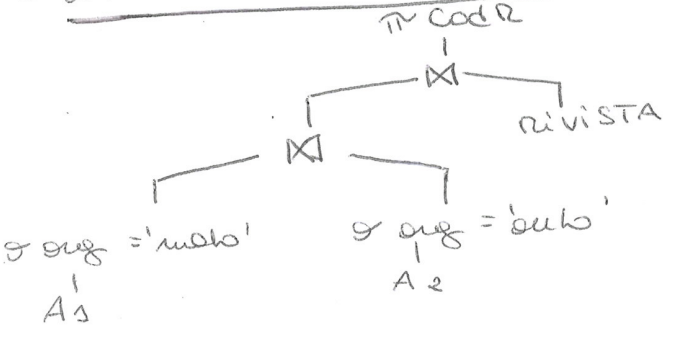 π CodR
⋈
RIVISTA
⋈
σ arg = 'moto'
σ arg = 'auto'
A1
A2